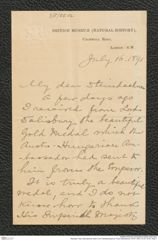 BRITISH MUSEUM (NATURAL HISTORY),
CROMWELL ROAD,
LONDON: S.W.
July 16. 1891
My dear Steindachner
A few days ago
I received from Lord
Salisbury the beautiful
Gold Medal which the
Austro-Hungarian Am-
bassador had sent to
him from the Emperor.
It is truly a beautiful
medal, and I do not
know how to thank
His Imperial Majesty